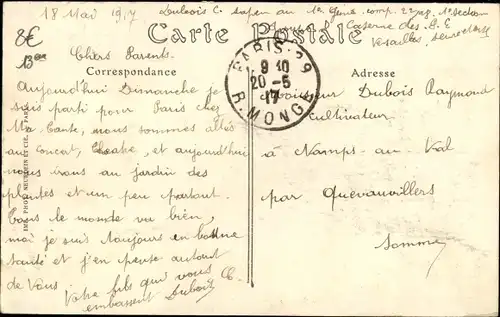 18 Mai 1917
Dubois C. sapeur au 1er Génie
Caserne des
Versailles
Carte Postale
8€
Chers Parents.
Correspondance
Adresse
PARIS 29
9 10
20-5
17
R. MONGE
Aujourd'hui Dimanche je
suis parti pour Paris chez
Ma Tante, nous sommes allés
au Concert, et aujourd'hui
nous irons au jardin des
plantes et un peu partout.
Tous le monde va bien,
moi je suis toujours en bonne
santé et j'en pense autant
de vous. Votre fils qui vous
embrassent Dubois C.
Monsieur Dubois Raymond
Cultivateur
à Namps au Val
par Quevauvillers
Somme
IMP. PHOT. NEURDEIN ET CIE. PARIS